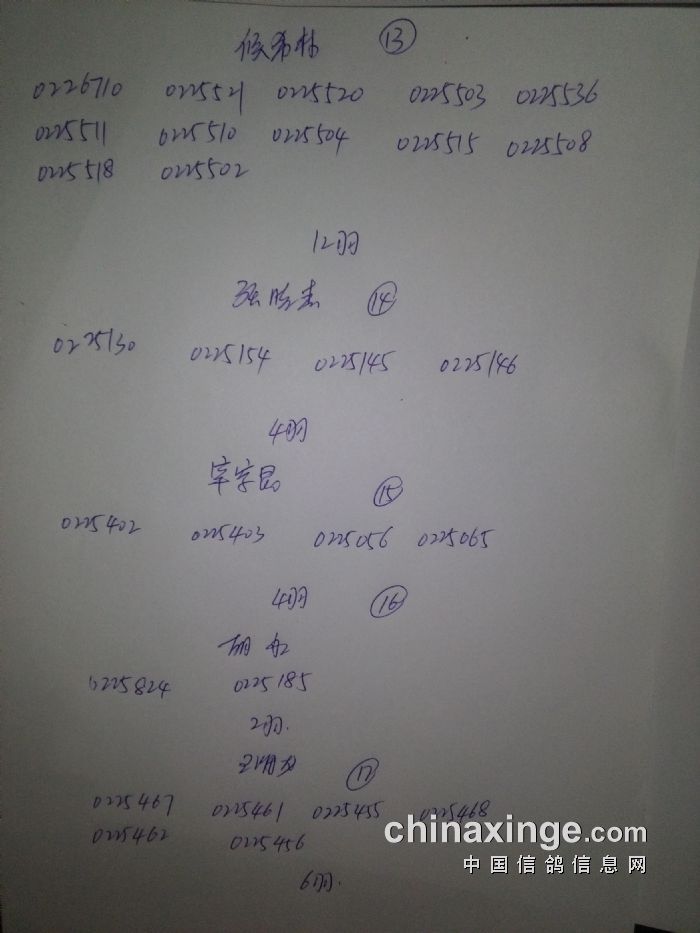 候希林 ⑬
0226710 0225521 0225520 0225503 0225536
0225511 0225510 0225504 0225515 0225508
0225518 0225502
12羽
⑭
0225130 0225154 0225145 0225146
4羽
⑮
0225402 0225403 0225056 0225065
4羽 ⑯
0225824 0225185
2羽.
⑰
0225467 0225461 0225455 0225468
0225462 0225456
6羽.
chinaxinge.com
中国信鸽信息网